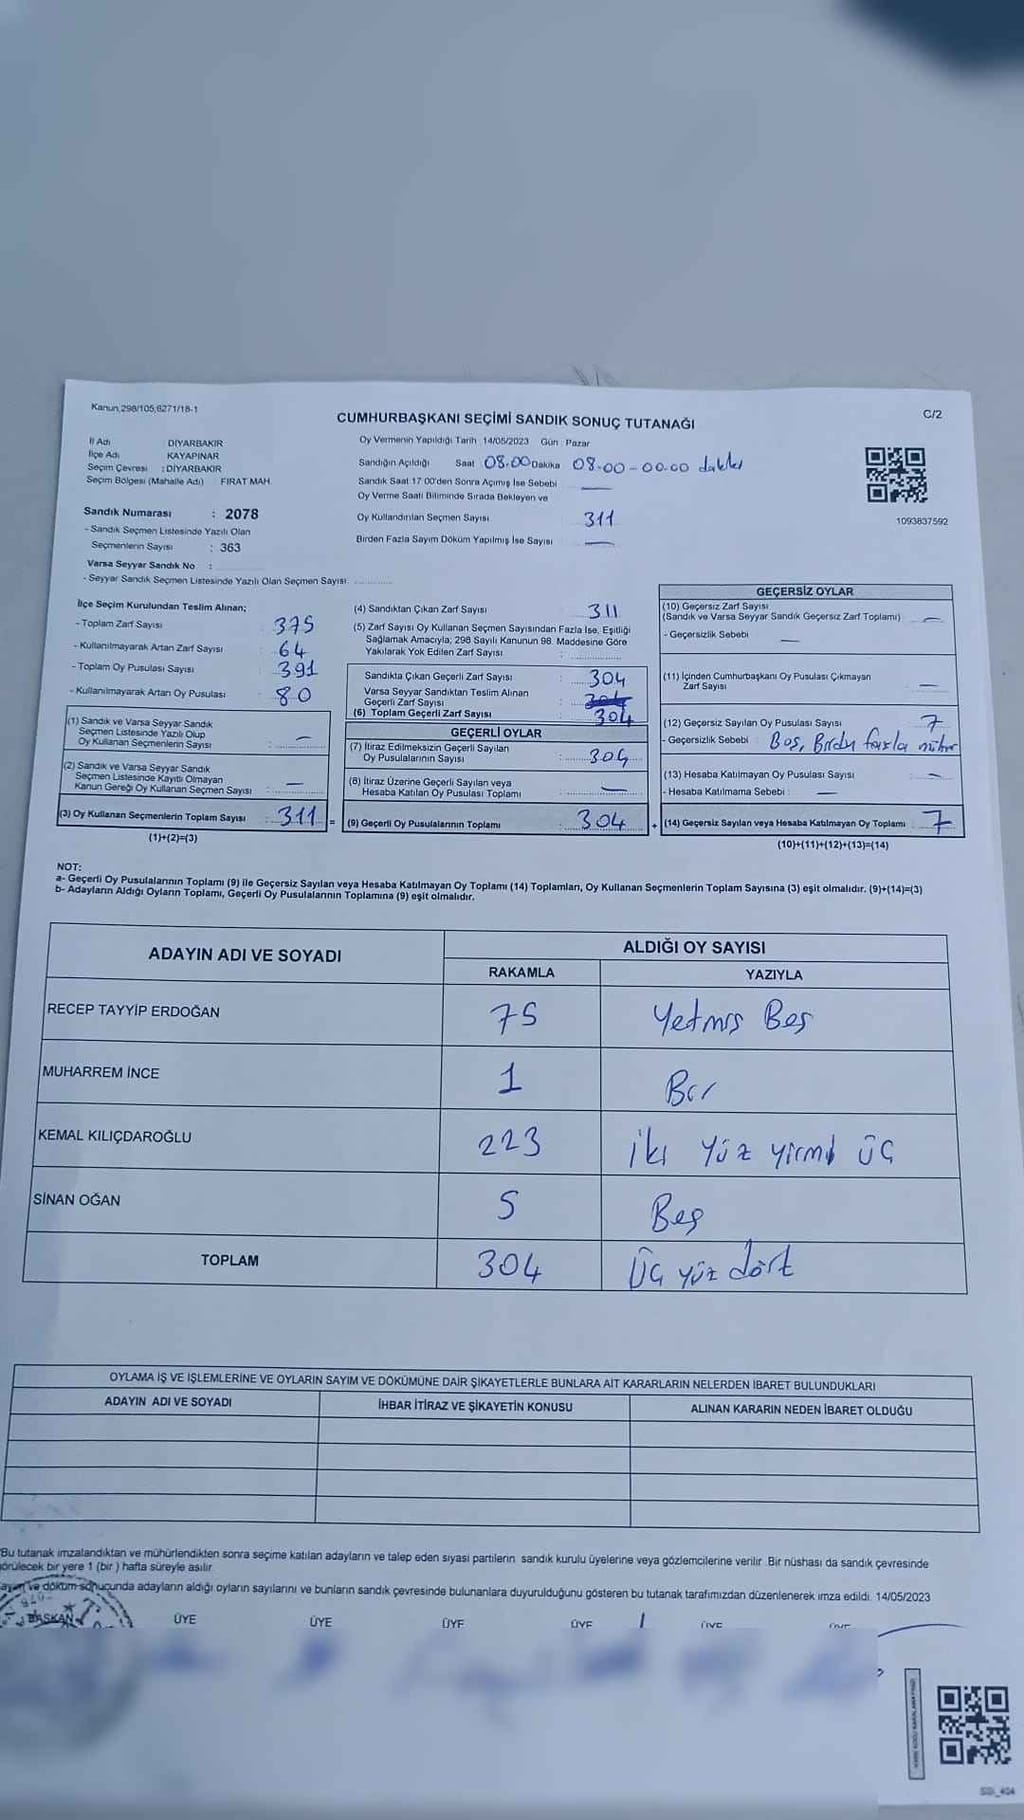 Kanun,298/105,6271/18-1
C/2
CUMHURBAŞKANI SEÇİMİ SANDIK SONUÇ TUTANAĞI
İl Adı DİYARBAKIR
İlçe Adı KAYAPINAR
Seçim Çevresi : DİYARBAKIR
Seçim Bölgesi (Mahalle Adı) FIRAT MAH.
Sandık Numarası : 2078
- Sandık Seçmen Listesinde Yazılı Olan
Seçmenlerin Sayısı : 363
Varsa Seyyar Sandık No :
- Seyyar Sandık Seçmen Listesinde Yazılı Olan Seçmen Sayısı:
Oy Vermenin Yapıldığı Tarih 14/05/2023 Gün Pazar
Sandığın Açıldığı Saat 08.00 Dakika 08.00-00.00
Sandık Saat 17:00'den Sonra Açımış İse Sebebi —
Oy Verme Saati Bitiminde Sırada Bekleyen ve
Oy Kullandırılan Seçmen Sayısı 311
Birden Fazla Sayım Döküm Yapılmış İse Sayısı —
1093837592
İlçe Seçim Kurulundan Teslim Alınan;
- Toplam Zarf Sayısı 375
- Kullanılmayarak Artan Zarf Sayısı 64
- Toplam Oy Pusulası Sayısı 391
- Kullanılmayarak Artan Oy Pusulası 80
(1) Sandık ve Varsa Seyyar Sandık
Seçmen Listesinde Yazılı Olup
Oy Kullanan Seçmenlerin Sayısı : —
(2) Sandık ve Varsa Seyyar Sandık
Seçmen Listesinde Kayıtlı Olmayan
Kanun Gereği Oy Kullanan Seçmen Sayısı : —
(3) Oy Kullanan Seçmenlerin Toplam Sayısı : 311 =
(1)+(2)=(3)
(4) Sandıktan Çıkan Zarf Sayısı 311
(5) Zarf Sayısı Oy Kullanan Seçmen Sayısından Fazla İse, Eşitliği
Sağlamak Amacıyla; 298 Sayılı Kanunun 98. Maddesine Göre
Yakılarak Yok Edilen Zarf Sayısı :
Sandıkta Çıkan Geçerli Zarf Sayısı : 304
Varsa Seyyar Sandıktan Teslim Alınan
Geçerli Zarf Sayısı :
(6) Toplam Geçerli Zarf Sayısı : 304
GEÇERLİ OYLAR
(7) İtiraz Edilmeksizin Geçerli Sayılan
Oy Pusulalarının Sayısı : 304
(8) İtiraz Üzerine Geçerli Sayılan veya
Hesaba Katılan Oy Pusulası Toplamı : —
(9) Geçerli Oy Pusulalarının Toplamı : 304 +
GEÇERSİZ OYLAR
(10) Geçersiz Zarf Sayısı
(Sandık ve Varsa Seyyar Sandık Geçersiz Zarf Toplamı) —
- Geçersizlik Sebebi —
(11) İçinden Cumhurbaşkanı Oy Pusulası Çıkmayan
Zarf Sayısı —
(12) Geçersiz Sayılan Oy Pusulası Sayısı 7
- Geçersizlik Sebebi : Boş, Birden fazla mühür
(13) Hesaba Katılmayan Oy Pusulası Sayısı —
- Hesaba Katılmama Sebebi : —
(14) Geçersiz Sayılan veya Hesaba Katılmayan Oy Toplamı 7
(10)+(11)+(12)+(13)=(14)
NOT:
a- Geçerli Oy Pusulalarının Toplamı (9) ile Geçersiz Sayılan veya Hesaba Katılmayan Oy Toplamı (14) Toplamları, Oy Kullanan Seçmenlerin Toplam Sayısına (3) eşit olmalıdır. (9)+(14)=(3)
b- Adayların Aldığı Oyların Toplamı, Geçerli Oy Pusulalarının Toplamına (9) eşit olmalıdır.
ADAYIN ADI VE SOYADI ALDIĞI OY SAYISI
RAKAMLA YAZIYLA
RECEP TAYYİP ERDOĞAN 75 Yetmiş Beş
MUHARREM İNCE 1 Bir
KEMAL KILIÇDAROĞLU 223 iki yüz yirmi üç
SİNAN OĞAN 5 Beş
TOPLAM 304 Üç yüz dört
OYLAMA İŞ VE İŞLEMLERİNE VE OYLARIN SAYIM VE DÖKÜMÜNE DAİR ŞİKAYETLERLE BUNLARA AİT KARARLARIN NELERDEN İBARET BULUNDUKLARI
ADAYIN ADI VE SOYADI İHBAR İTİRAZ VE ŞİKAYETİN KONUSU ALINAN KARARIN NEDEN İBARET OLDUĞU
Bu tutanak imzalandıktan ve mühürlendikten sonra seçime katılan adayların ve talep eden siyasi partilerin sandık kurulu üyelerine veya gözlemcilerine verilir. Bir nüshası da sandık çevresinde
görülecek bir yere 1 (bir) hafta süreyle asılır
ve döküm sonucunda adayların aldığı oyların sayılarını ve bunların sandık çevresinde bulunanlara duyurulduğunu gösteren bu tutanak tarafımızdan düzenlenerek imza edildi. 14/05/2023
BAŞKAN ÜYE ÜYE ÜYE ÜYE ÜYE ÜYE